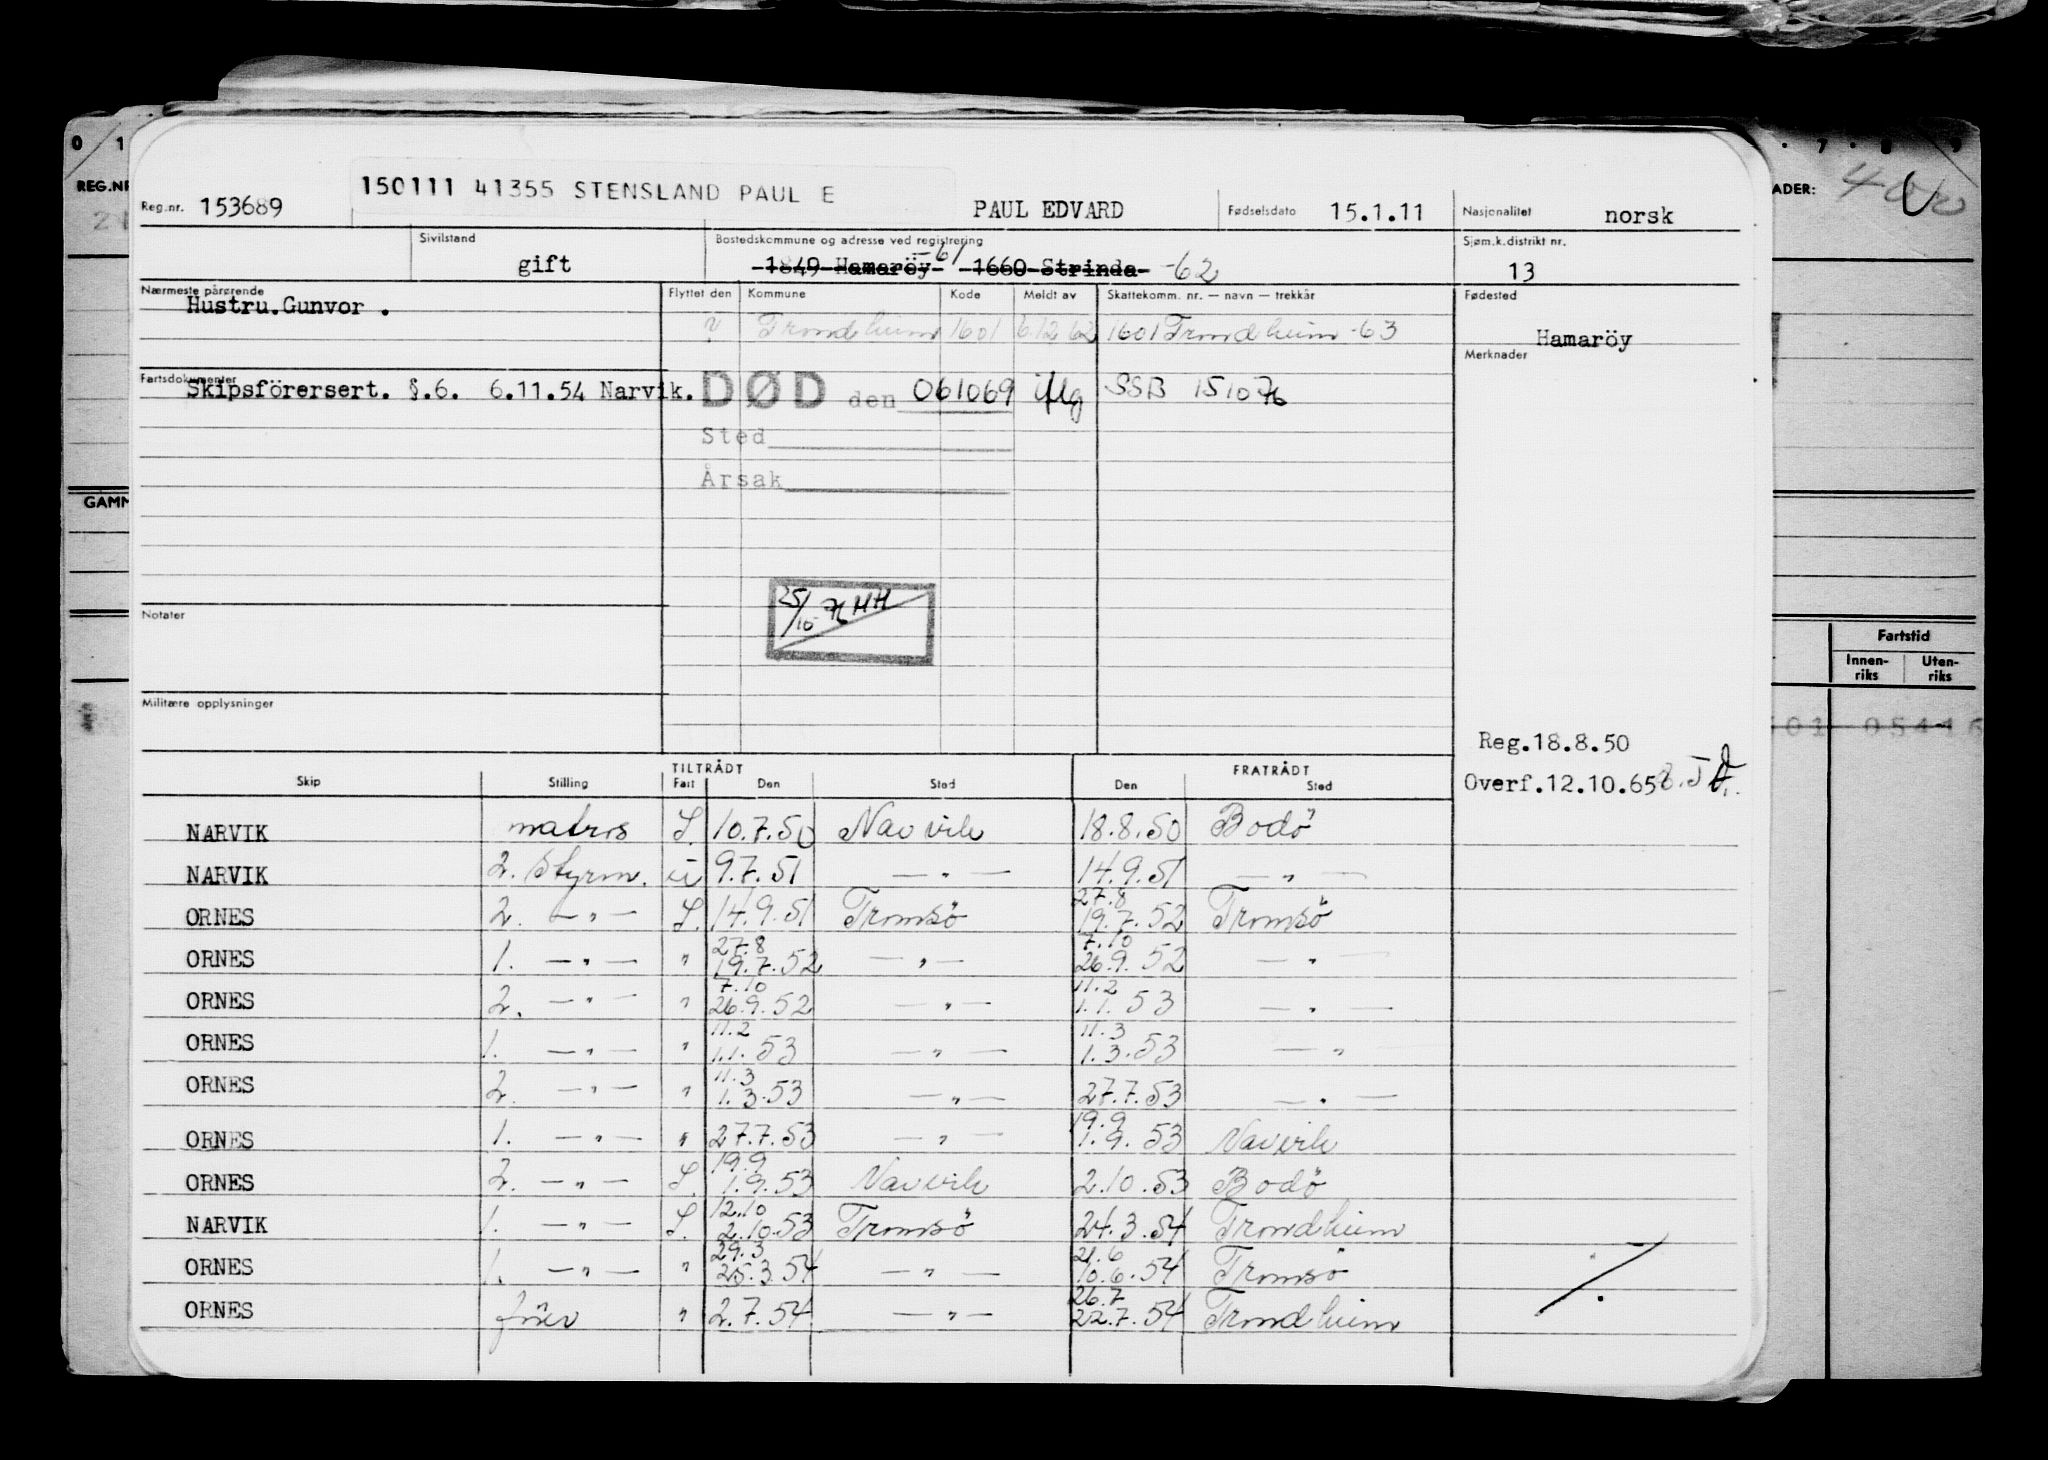 0 1 7 8 9
REG.NR
ADER:
Reg.nr. 153689 150111 41355 STENSLAND PAUL E PAUL EDVARD Fødselsdato 15.1.11 Nasjonalitet norsk
Sivilstand gift Bostedskommune og adresse ved registrering Sjøm.k.distrikt nr.
1849 Hamaröy -61 1660 Strinda -62 13
Nærmeste pårørende Flyttet den Kommune Kode Meldt av Skattekomm. nr. — navn — trekkår Fødested
Hustru.Gunvor .
? Trondheim 1601 6.12 62 1601 Trondheim -63 Hamaröy
Merknader
Fartsdokumenter
Skipsförersert. §.6. 6.11.54 Narvik. DØD den 061069 SSB 151076
Sted
Årsak
GAMM
25/10 76 HH
Notater
Fartstid
Innen-riks Uten-riks
Militære opplysninger
Reg.18.8.50
Overf.12.10.65
TILTRÅDT FRATRÅDT
Skip Stilling Fart Den Sted Den Sted
NARVIK matros L. 10.7.50 Narvik 18.8.50 Bodö
NARVIK 2. Styrm. 9.7.51 — " — 14.9.51 — " —
ORNES 2. — " — L. 14.9.51 Tromsö 27.8 19.7.52 Tromsö
ORNES 1. — " — " 27.8 19.7.52 — " — 7.10 26.9.52 — " —
ORNES 2. — " — " 7.10 26.9.52 — " — 11.2 1.1.53 — " —
ORNES 1. — " — " 11.2 1.1.53 — " — 11.3 1.3.53 — " —
ORNES 2. — " — " 11.3 1.3.53 — " — 27.7.53 — " —
ORNES 1. — " — " 27.7.53 — " — 19.9 1.9.53 Narvik
ORNES 2. — " — L. 19.9 1.9.53 Narvik 2.10.53 Bodö
NARVIK 1. — " — L. 12.10 2.10.53 Tromsö 24.3.54 Trondheim
ORNES 1. — " — " 29.3 25.3.54 — " — 21.6 10.6.54 Tromsö
ORNES förer " 2.7.54 — " — 26.7 22.7.54 Trondheim